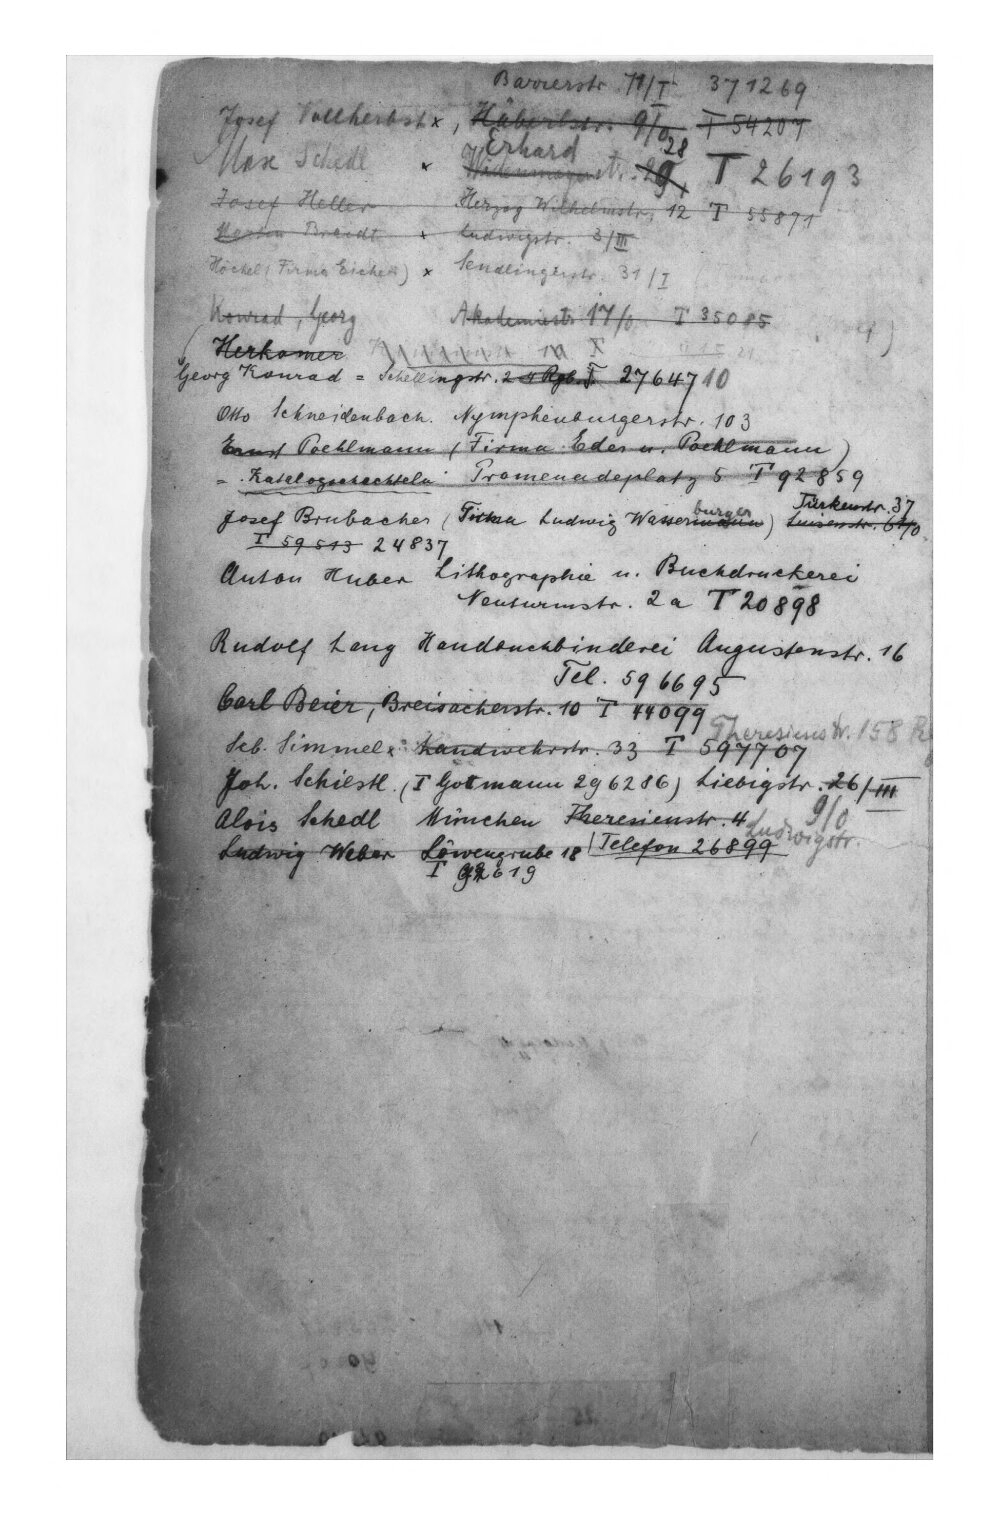 Bavverstr. 71/I 371269
Josef Vollherbst x, Häberlstr. 9/0 T 54207
Erhard 28
Max Schedl x Widenmayerstr. 29 T 26193
Josef Heller Herzog Wilhelmstr. 12 T 55871
Brandt x Ludwigstr. 3/III
Höchel (Firma Eichen) x Sendlingerstr. 31/I
Konrad, Georg Akademiestr. 17/0 T 35085
Herkomer
Georg Konrad = Schellingstr. 24 Rgb. T. 27647 10
Otto Schneidenbach. Nymphenburgerstr. 103
Ernst Poehlmann (Firma Eder u. Poehlmann)
= Katalogschachteln Promenadeplatz 5 T 92859
burger Türkenstr. 37
Josef Brubacher (Firma Ludwig Wassermann) Luisenstr.
T 59513 24837
Anton Huber Lithographie u. Buchdruckerei
Neuturmstr. 2a T 20898
Rudolf Lang Handbuchbinderei Augustenstr. 16
Tel. 596695
Carl Beier, Breisacherstr. 10 T 44099
Theresienstr. 158
Seb. Simmel x Landwehrstr. 33 T 597707
Joh. Schilstl. (T Gottmann 296286) Liebigstr. 26/III
9/0
Alois Schedl München Theresienstr. 4 Ludwigstr.
Ludwig Weber Löwengrube 18 / Telefon 26899
T 92619